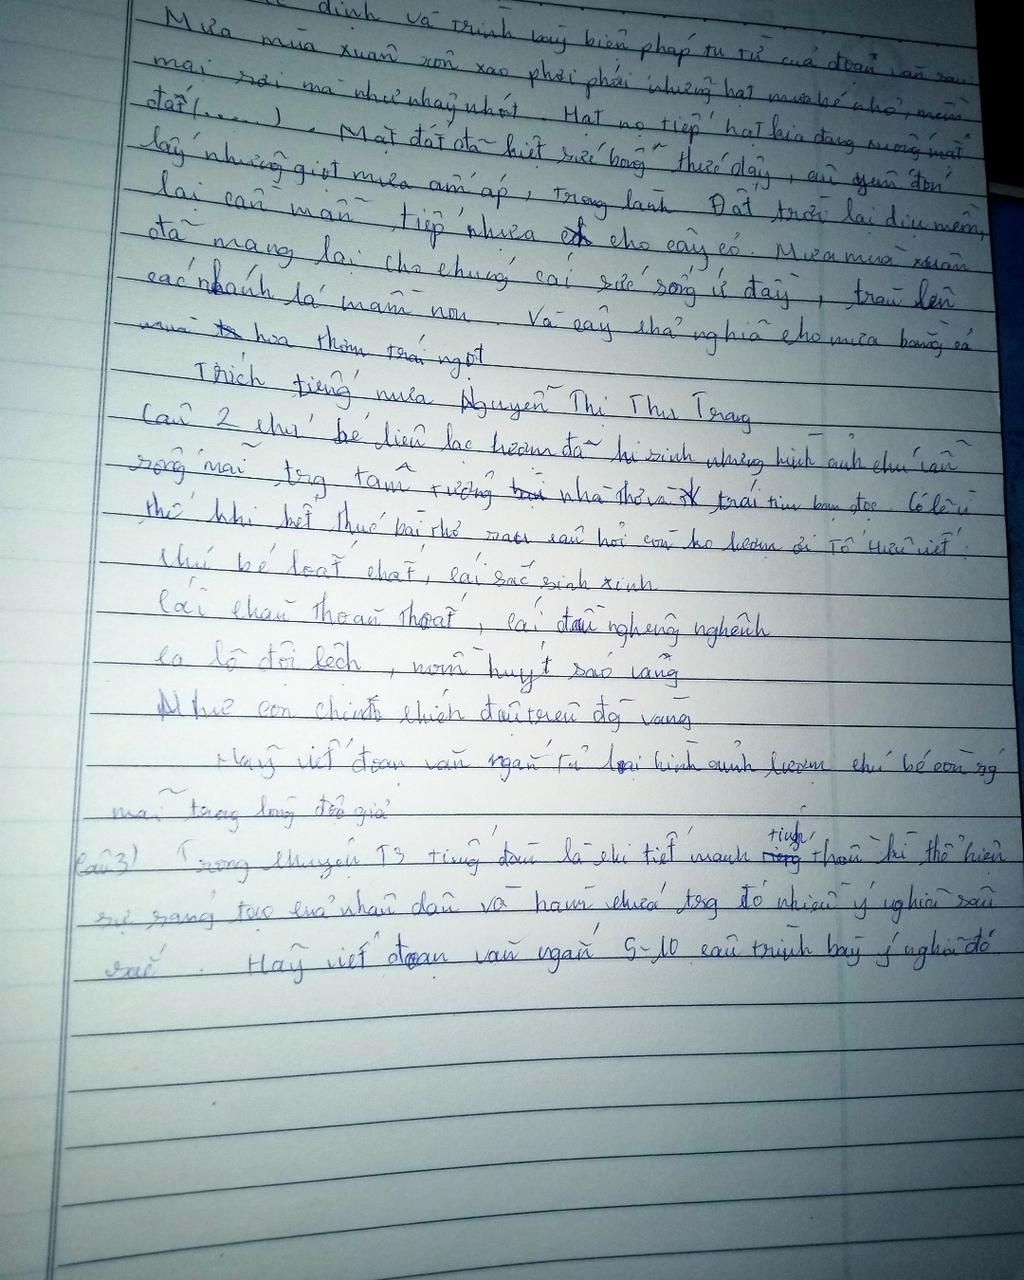 định và trình bày biện pháp tu từ của đoạn văn sau
Mưa mùa xuân xôn xao phơi phới những hạt mưa bé nhỏ, mềm
mại rơi mà như nhảy nhót. Hạt nọ tiếp hạt kia đang xuống mặt
đất (......). Mặt đất đã kiệt sức bỗng thức dậy, âu yếm đón
lấy những giọt mưa ấm áp, trong lành. Đất trời lại dịu mềm,
lại cần mẫn tiếp nhựa cho cây cỏ. Mưa mùa xuân
đã mang lại cho chúng cái sức sống ứ đầy, tràn lên
các nhánh lá mầm non. Và cây thả nghĩa cho mưa bằng cả
hoa thơm trái ngọt
Trích tiếng mưa Nguyễn Thị Thu Trang
Câu 2 chú bé liên lạc lượm đã hi sinh nhưng hình ảnh chú vẫn
sống mãi trg tâm tưởng nhà thơ và trái tim bạn đọc. Có lẽ vì
thế khi kết thúc bài thơ sau câu hỏi còn ko lượm ơi Tố Hữu viết:
Chú bé loắt choắt, cái sắc sinh xinh
Cái chân thoăn thoắt, cái đầu nghênh nghênh
ca lô đội lệch, mồm huýt sáo vang
Như con chim chích
vàng
Hãy viết đoạn văn ngắn tả lại hình ảnh lượm chú bé còn
mãi trong lòng độc giả
Câu 3) Trong chuyện TS tiếng đàn là chi tiết mang tính thần kì thể hiện
sự sáng tạo của nhân dân và hàm chứa trg đó nhiều ý nghĩa sâu
sắc. Hãy viết đoạn văn ngắn 5-10 câu trình bày ý nghĩa đó